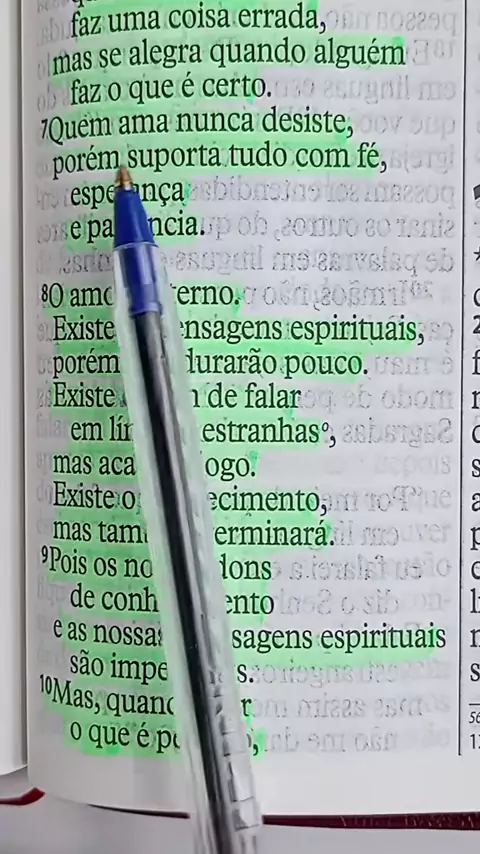 faz uma coisa errada,
mas se alegra quando alguém
faz o que é certo.
7Quem ama nunca desiste,
porém suporta tudo com fé,
esperança
e paciência.
8O amor eterno.
Existem mensagens espirituais,
porém durarão pouco.
Existe de falar
em línguas estranhas,
mas acaba logo.
Existe o conhecimento,
mas também terminará.
9Pois os nossos dons
de conhecimento
e as nossas mensagens espirituais
são imperfeitos.
10Mas, quando
o que é perfeito,